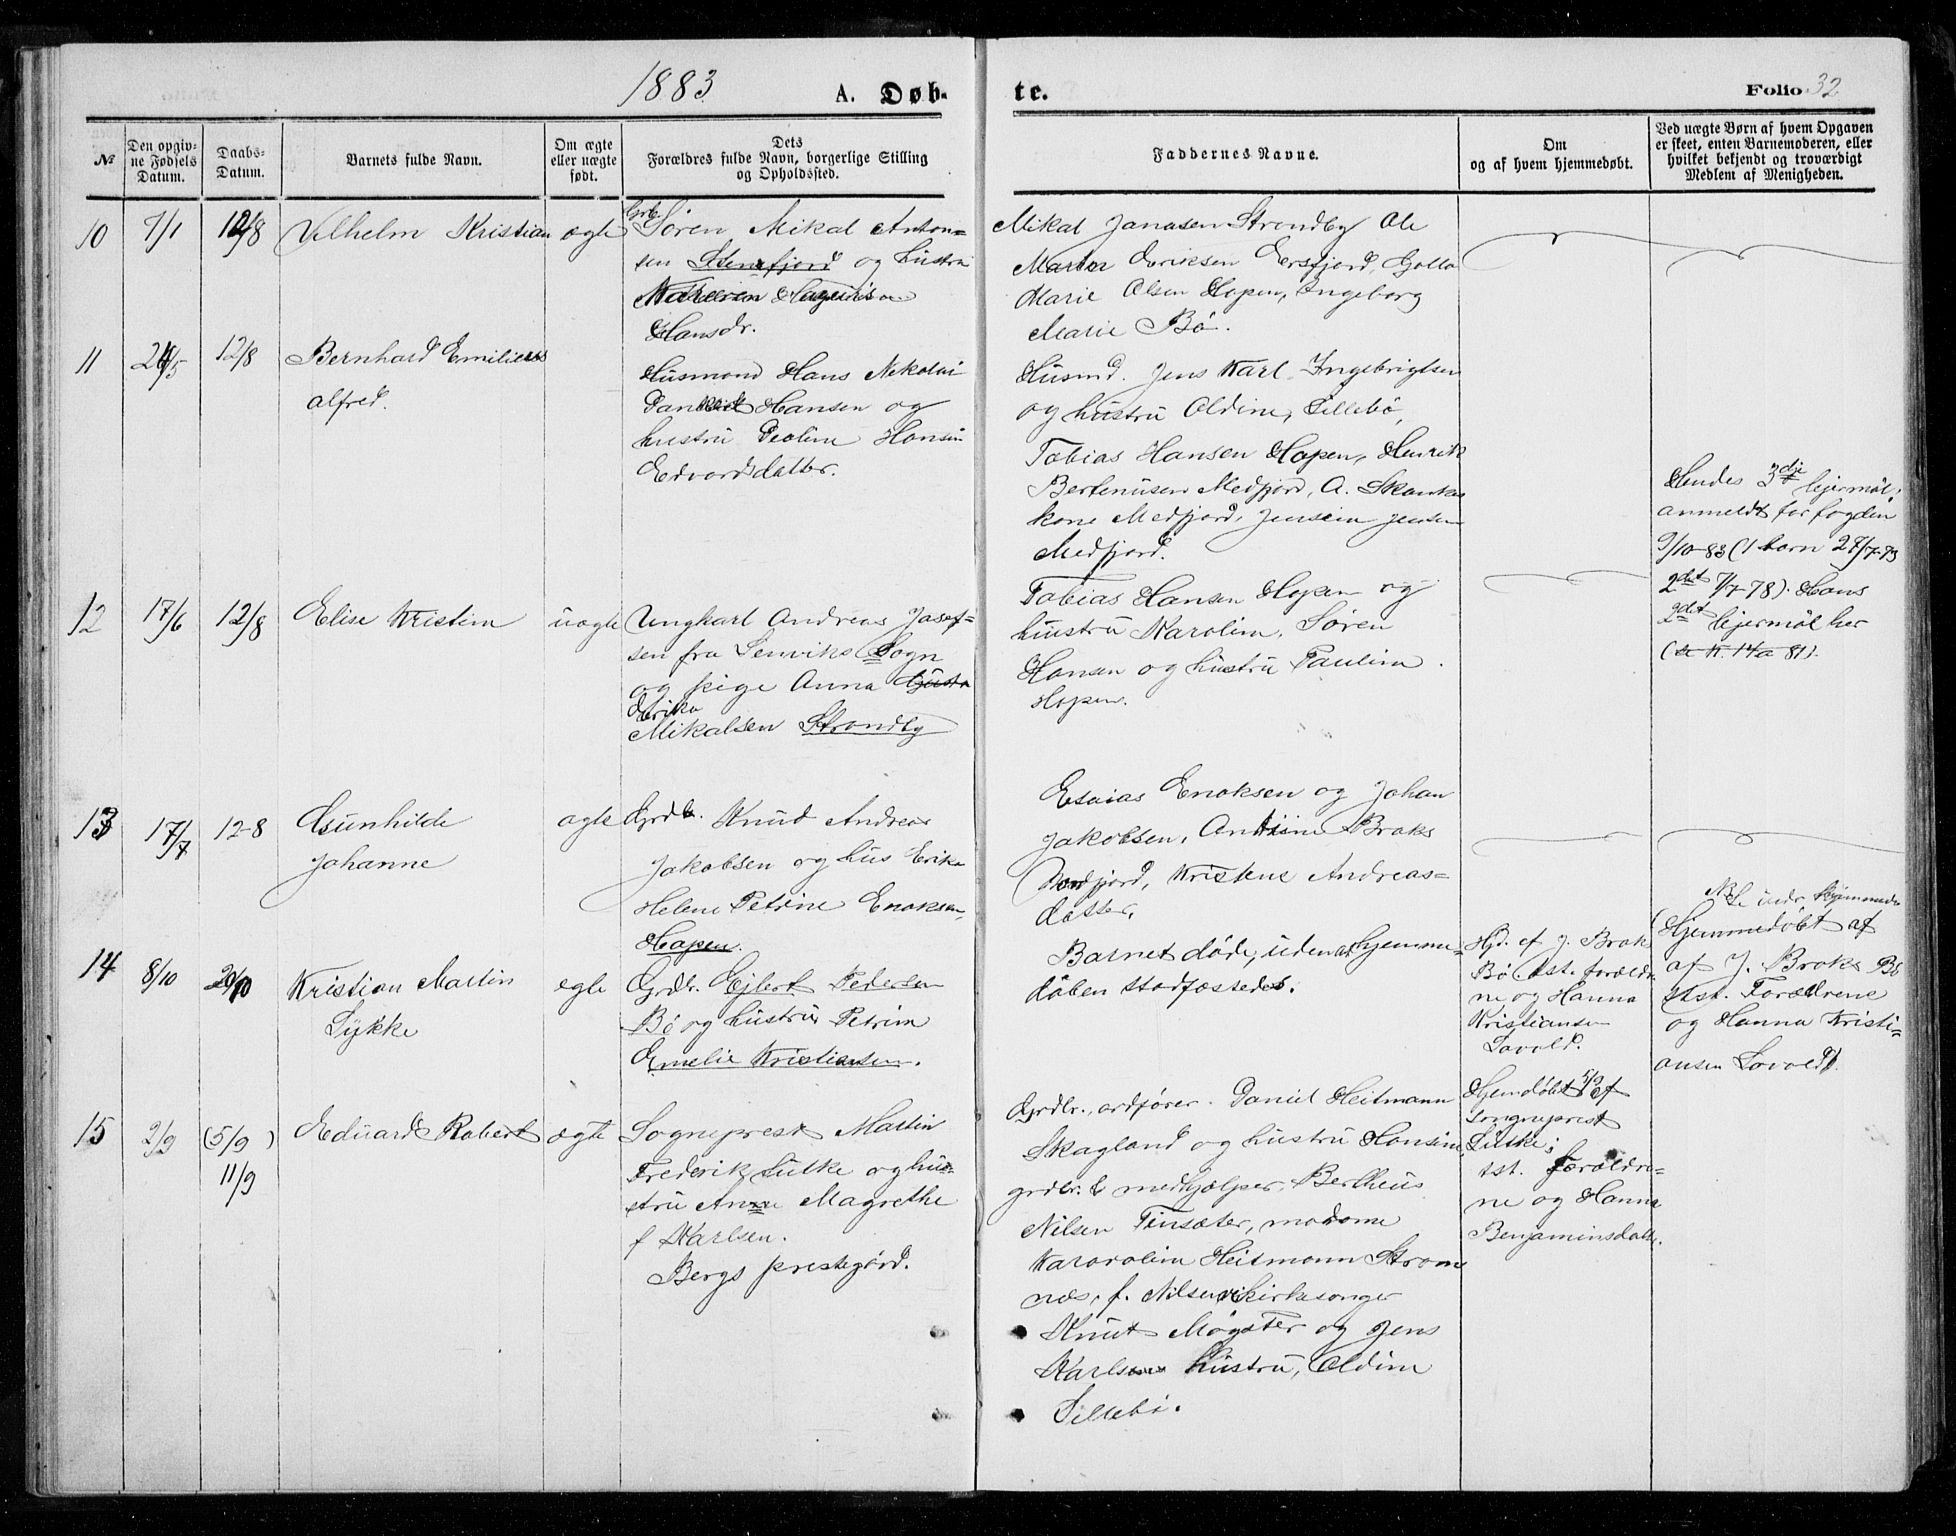 1883
A. Døb-
te.
Folio 32
№
Den opgiv-
ne Fødsels
Datum.
Daabs-
Datum.
Barnets fulde Navn.
Om ægte
eller uægte
født.
Dets
Forældres fulde Navn, borgerlige Stilling
og Opholdssted.
Faddernes Navne.
Om
og af hvem hjemmedøbt.
Ved uægte Børn af hvem Opgaven
er skeet, enten Barnemoderen, eller
hvilket bekjendt og troværdigt
Medlem af Menigheden.
10
7/1
12/8
Vilhelm Kristian
ægte
Søren Mikal Anton=
sen Steinfjord og hustru
Hansdr.
Mikal Jonasen Strondby Ole
Martin Eriksen Ersfjord,
Marie Olsen Hopen, Ingeborg
Marie Bö.
11
24/5
12/8
Bernhard Emilius
Alfred.
Husmand Hans Nikolai
Hansen og
hustru Peoline Hansin
Edvardsdatter.
Husmd. Jens Karl Ingebrigtsen
og hustru Oldine, Sillebö,
Tobias Hansen Hopen, Henrik
Bertenusen Medfjord, A. Skankes
kone Medfjord, Jensen
Medfjord.
12
17/6
12/8
Elise Kristine
uægte
Ungkarl Andreas Josef=
sen fra Lenviks Sogn
og pige Anna
Erika
Mikalsen Strondby
Tobias Hansen Hopen og
hustru Karoline, Søren
Hansen og hustru Pauline
Hopen.
Hendes 3die lejermål,
anmeldt for fogden
9/10-83 (1 barn 27/7-73
2det 7/7-78). Hans
2det lejermål her
(se K. 14a 81).
13
17/7
12-8
Gunhilde
Johanne
ægte
Grdbr. Knud Andreas
Jakobsen og hus Erika
Helene Petrine Enoksen,
Hopen.
Esaias Enoksen og Johan
Jakobsen, Antine Broks
Kristene Andreas=
datter.
14
8/10
20/10
Kristian Martin
Lykke
egte
Grdbr. Ejlert Pedersen
Bö og hustru Petrine
Emelie Kristiansen.
Barnet døde, uden at hjemme-
dåben stadfæstedes.
Hjd. af J. Brok
Bö tst. forældre
ne og Hanna
Kristiansen
Lovold.
Hjemmedøbt af
af J. Broks Bö
tst. Forældrene
og Hanna Kristi=
ansen Lovold.
15
2/9
(5/9)
11/9
Eduard Robert
ægte
Sogneprest Martin
Frederik Lutke og hu=
stru Anne Magrethe
f Karlsen.
Bergs prestegård.
Grdbr., ordfører. Daniel Heitmann
Skagland og hustru Hansine,
grdbr. & medhjælper, Bertheus
Nilsen Finsæter, madame
Heitmann Strom
næs, f. Nilsen, kirkesanger
Knut Mögster og Jens
Karlsens hustru, Oldine
Sillebö.
Hjemdøbt 5/9 af
Sogneprest
Lütke;
tst. forældre-
ne og Hanna
Benjaminsdatter.